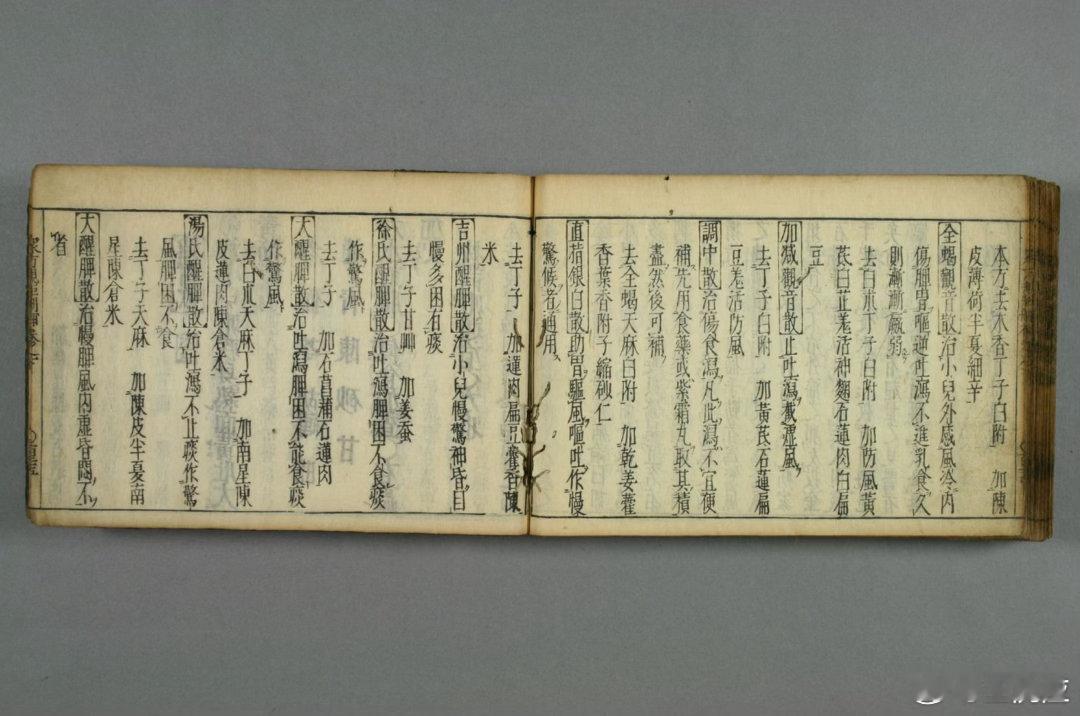 本方去木香丁子白附 加陳
皮薄荷半夏細辛
全蝎觀音散治小兒外感風冷内
傷脾胃嘔逆吐瀉不進乳食久
則漸漸羸弱
去白朮丁子白附 加防風黄
芪白芷羌活神麯石蓮肉白扁
豆
加减觀音散止吐瀉截虚風
去丁子白附 加黄芪石蓮扁
豆羌活防風
調中散治傷食瀉凡此瀉不宜便
補先用食藥或紫霜丸取其積
盡然後可補
直指銀白散助胃驅風嘔吐作慢
驚候者通用
去全蝎天麻白附 加乾姜藿
香葉香附子縮砂仁
去丁子 加蓮肉扁豆藿香陳
米
吉州醒脾散治小兒慢驚神昏目
慢多困有痰
去丁子甘艸 加姜蚕
徐氏醒脾散治吐瀉脾困不食痰
作驚風
去丁子 加石菖蒲石蓮肉
大醒脾散治吐瀉脾困不能食痰
作驚風
去白朮天麻丁子 加南星陳
皮蓮肉陳倉米
湯氏醒脾散治吐瀉不止痰作驚
風脾困不食
去丁子天麻 加陳皮半夏南
星陳倉米
大醒脾散治慢脾風内虚昏悶不
省